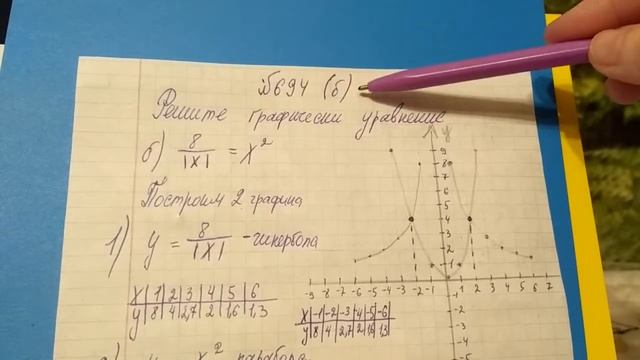 №694 (б)
Решите графически уравнение
б) 8/|x| = x²
Построим 2 графика
1) y = 8/|x| - гипербола
x 1 2 3 4 5 6
y 8 4 2,7 2 1,6 1,3
x -1 -2 -3 -4 -5 -6
y 8 4 2,7 2 1,6 1,3
y
9
8
7
6
5
4
3
2
1
-9 -8 -7 -6 -5 -4 -3 -2 -1 1 2 3 4 5 6 7
-1
-2
-3
-4
-5
x² парабола